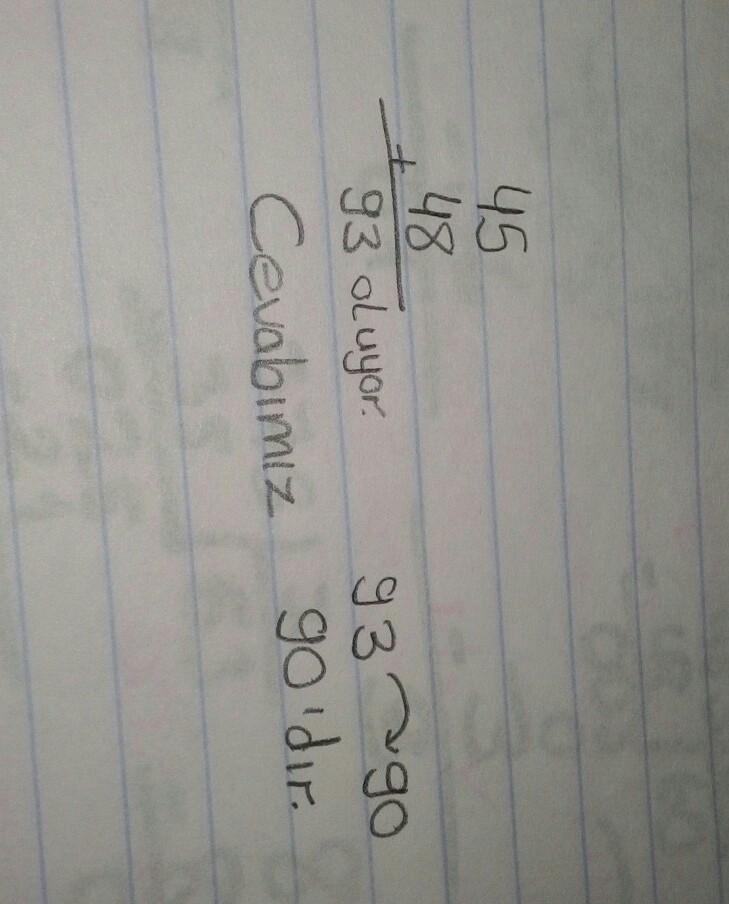 45
48
+
93 oluyor. 93 → 90
Cevabımız 90'dır.